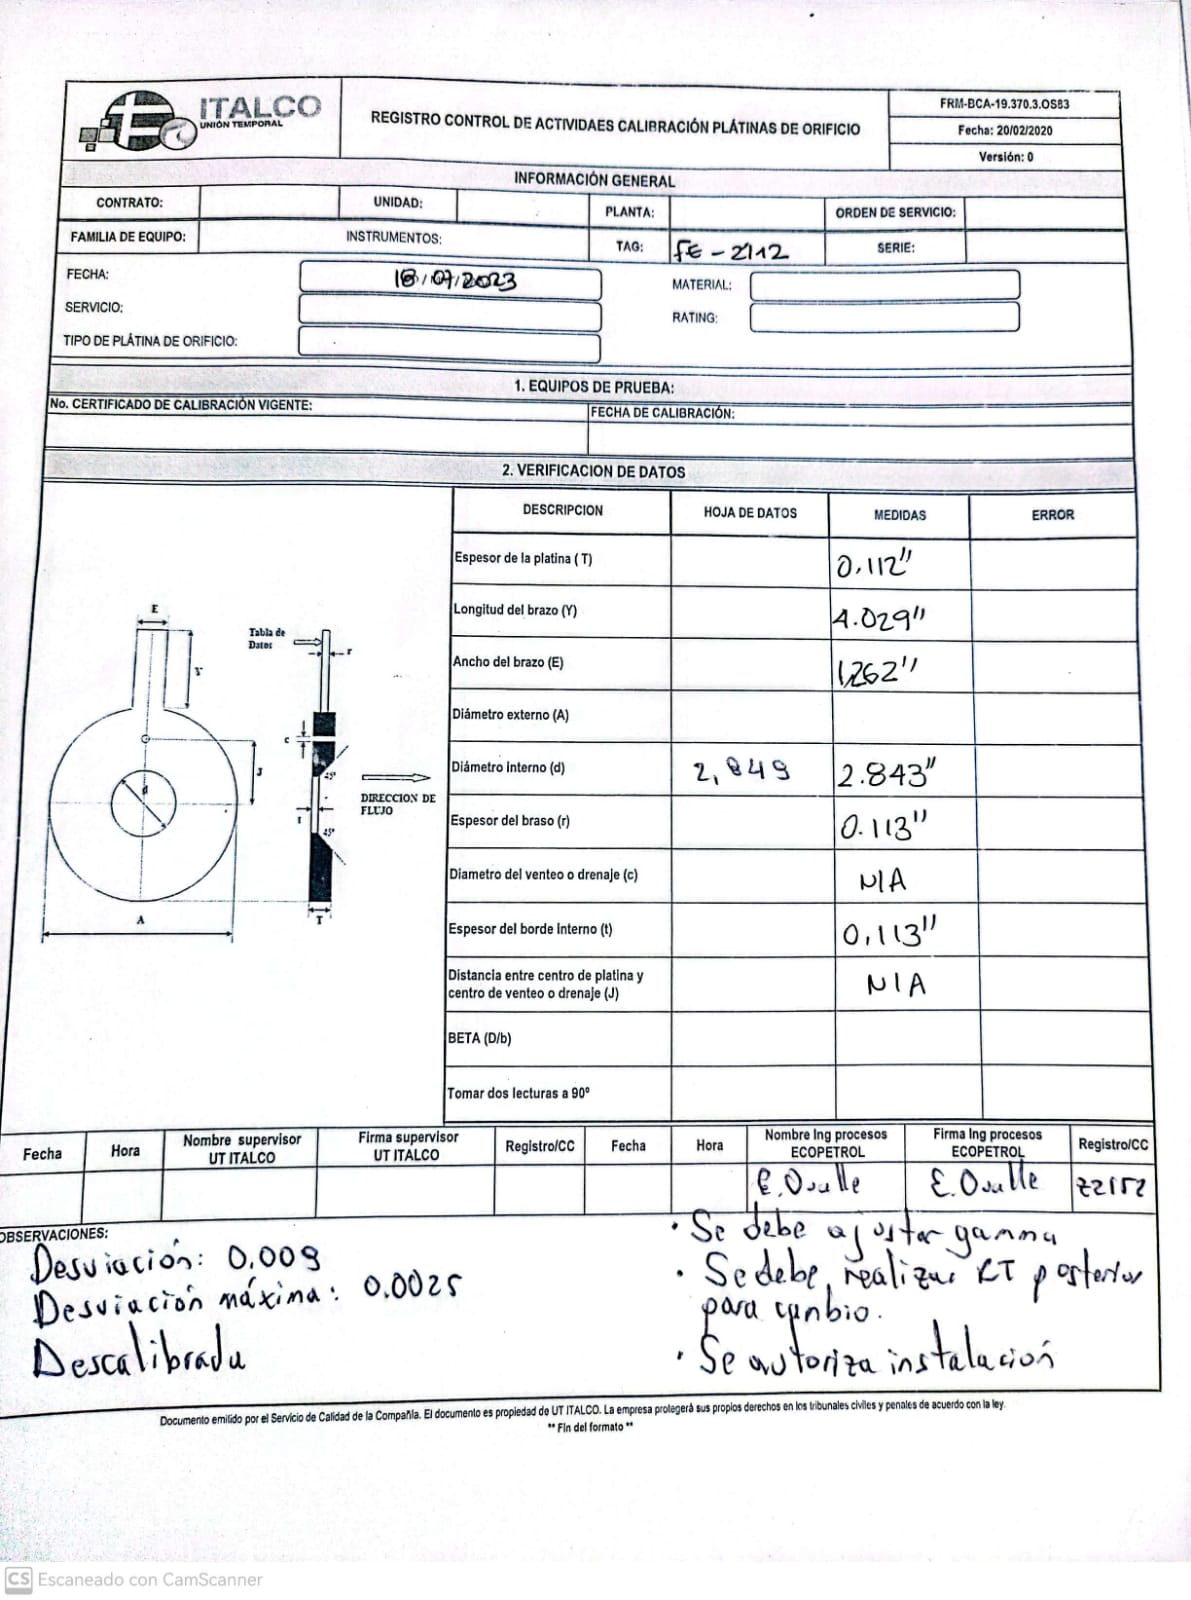 ITALCO
UNIÓN TEMPORAL
REGISTRO CONTROL DE ACTIVIDAES CALIBRACIÓN PLÁTINAS DE ORIFICIO
FRM-BCA-19.370.3.OS83
Fecha: 20/02/2020
Versión: 0
INFORMACIÓN GENERAL
CONTRATO: UNIDAD: PLANTA: ORDEN DE SERVICIO:
FAMILIA DE EQUIPO: INSTRUMENTOS: TAG: FE-2112 SERIE:
FECHA: 18/07/2023 MATERIAL:
SERVICIO: RATING:
TIPO DE PLÁTINA DE ORIFICIO:
1. EQUIPOS DE PRUEBA:
No. CERTIFICADO DE CALIBRACIÓN VIGENTE: FECHA DE CALIBRACIÓN:
2. VERIFICACION DE DATOS
DESCRIPCION HOJA DE DATOS MEDIDAS ERROR
Espesor de la platina ( T) 0.112"
Longitud del brazo (Y) 4.029"
Ancho del brazo (E) 1,262"
Diámetro externo (A)
Diámetro interno (d) 2,849 2.843"
Espesor del braso (r) 0.113"
Diametro del venteo o drenaje (c) N/A
Espesor del borde interno (t) 0,113"
Distancia entre centro de platina y
centro de venteo o drenaje (J) N/A
BETA (D/b)
Tomar dos lecturas a 90º
E
Y
Tabla de
Datos
r
c
J
45º
d
DIRECCION DE
FLUJO
t
45º
A
T
Fecha Hora Nombre supervisor
UT ITALCO Firma supervisor
UT ITALCO Registro/CC Fecha Hora Nombre Ing procesos
ECOPETROL Firma Ing procesos
ECOPETROL Registro/CC
E. Ovalle E. Ovalle
OBSERVACIONES:
Desviación: 0.009
Desviación máxima: 0.0025
Descalibrada
• Se debe ajustar gamma
• Se debe realizar RT posterior
para cambio.
• Se autoriza instalación
Documento emitido por el Servicio de Calidad de la Compañía. El documento es propiedad de UT ITALCO. La empresa protegerá sus propios derechos en los tribunales civiles y penales de acuerdo con la ley.
** Fin del formato **
CS Escaneado con CamScanner